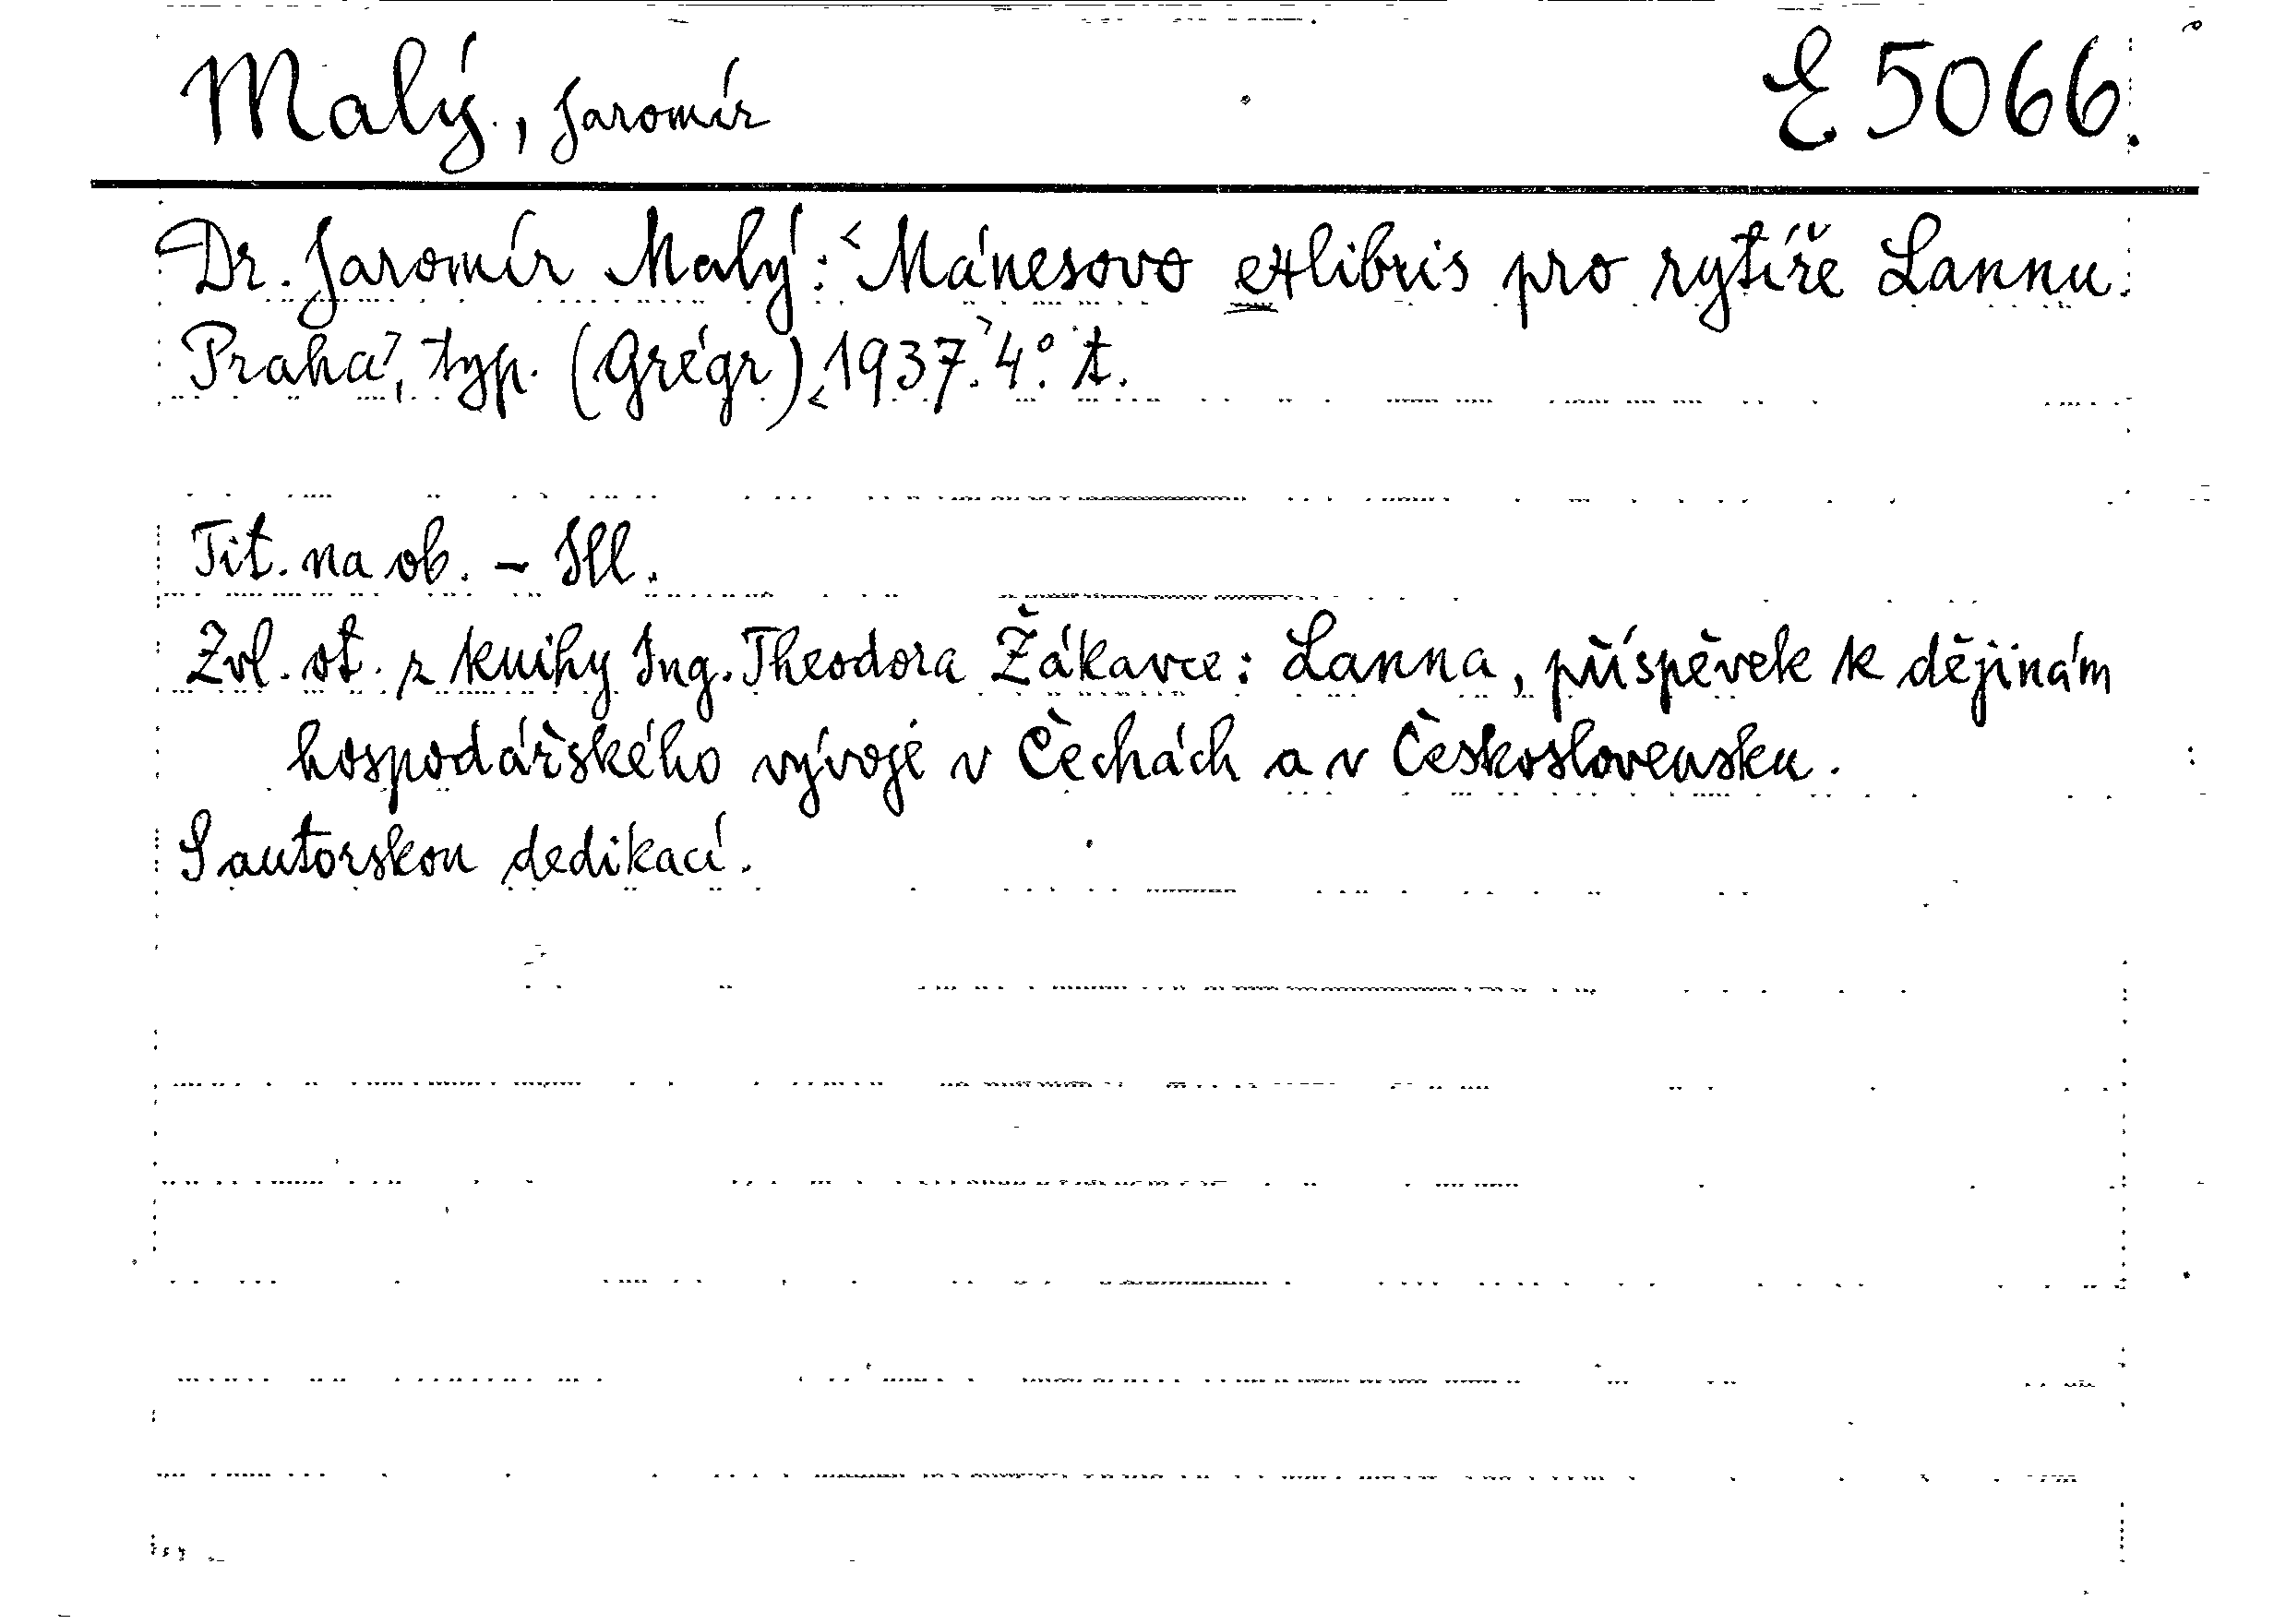 Malý, Jaromír E 5066.
Dr. Jaromír Malý: <Mánesovo exlibris pro rytíře Lannu.
Praha>, typ. (Grégr) <1937.> 4°. t.
Tit. na ob. – Ill.
Zvl. ot. z knihy Ing. Theodora Žákavce: Lanna, příspěvek k dějinám
hospodářského vývoje v Čechách a v Československu.
S autorskou dedikací.